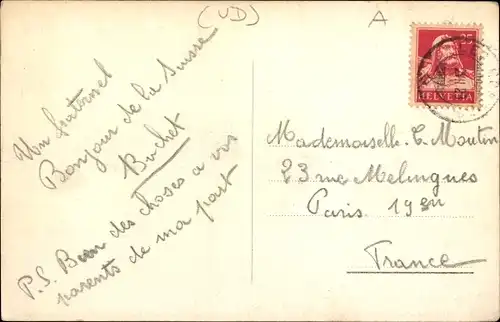 (VD)
A
Un fraternel
Bonjour de la Suisse
Buchet
P.S. Bien des choses a vos
parents de ma part
25
HELVETIA
Mademoiselle C. Moutin
23 rue Melingues
Paris 19en
France